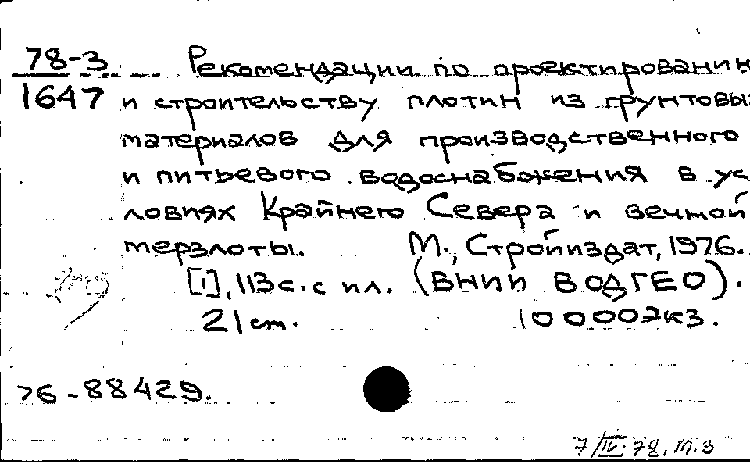 78-3 Рекомендации по проектировании
1647 и строительству плотин из грунтовых
материалов для производственного
и питьевого водоснабжения в ус
ловиях Крайнего Севера и вечной
мерзлоты. М., Стройиздат, 1976.
[1], 113 с. с ил. (ВНИИ ВОДГЕО).
21 см. 10000экз.
76-88429.
7/IV-78. м.з